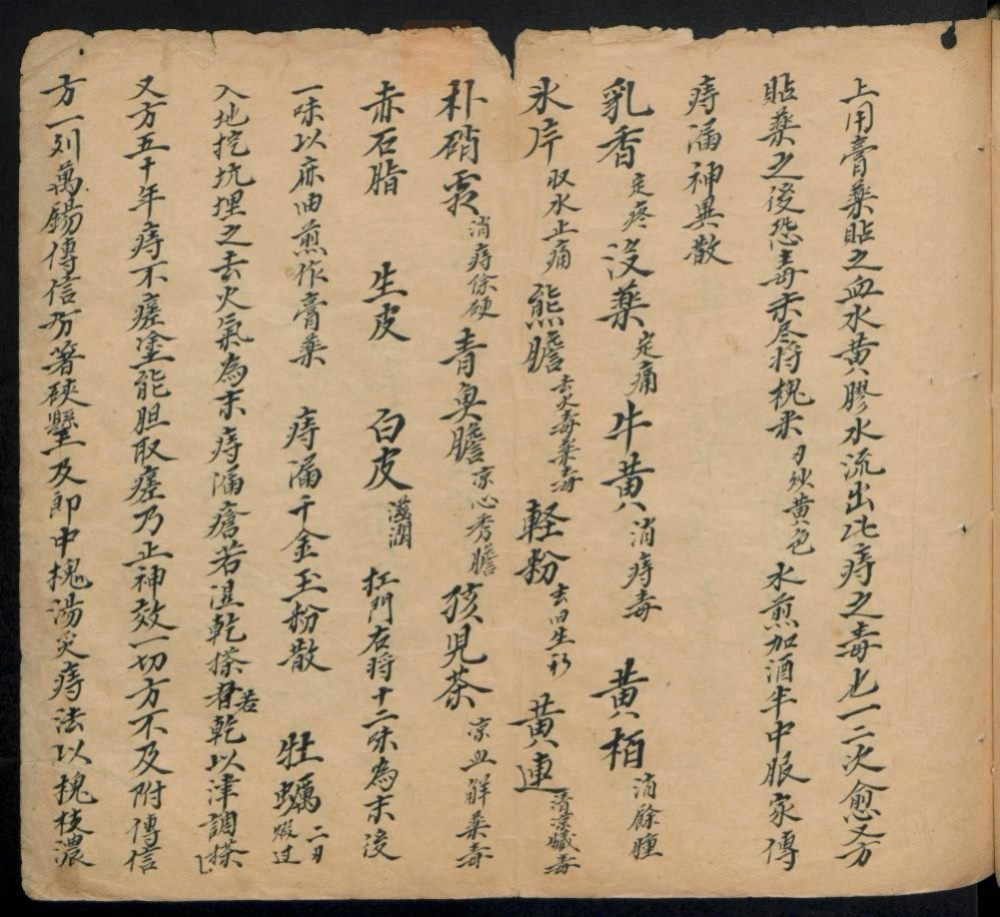 上用膏藥貼之血水黃膠水流出此痔之毒也一二次愈又方
貼藥之後恐毒未尽將槐米刃炒黃色水煎加酒半中服家傳
痔漏神異散
乳香定疼沒藥定痛牛黃消痔毒黃柏消餘腫
氷片収水止痛熊膽去火毒藥毒軽粉去旧生新黃連清涼臟毒
朴硝消痔除硬青魚膽凉心秀膽孩児茶凉血解藥毒
赤石脂生皮白皮滋潤肛門右將十二味為末後
一味以麻油煎作膏藥痔漏千金玉粉散牡蠣二刃煅过
入地挖坑埋之去火氣為末痔漏瘡若湿乾搽若乾以津調搽
又方五十年痔不瘥塗熊胆取瘥乃止神效一切方不及附傳信
方一列萬錫傳信方箸硤懸及郎中槐湯灸痔法以槐枝濃